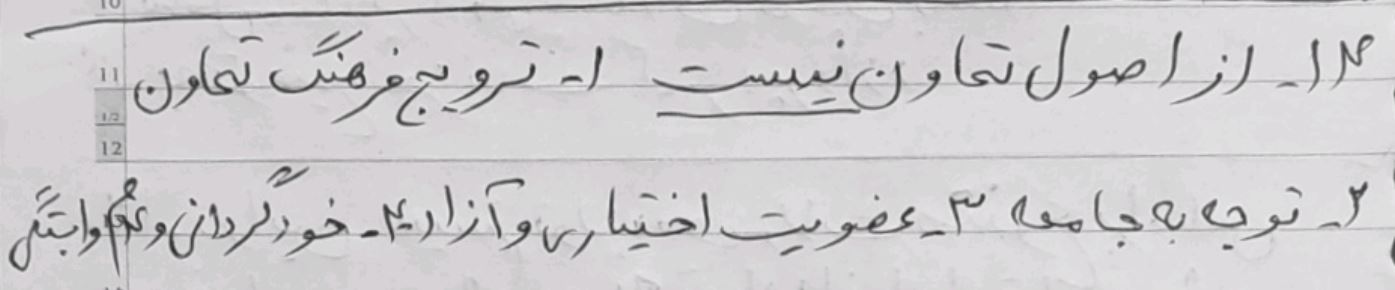 10
۱۴- از اصول تعاون نیست ۱- ترویج فرهنگ تعاون
11
1/2
12
۲- توجه به جامعه ۳- عضویت اختیاری و آزاد ۴- خودگردانی و عدم وابستگی